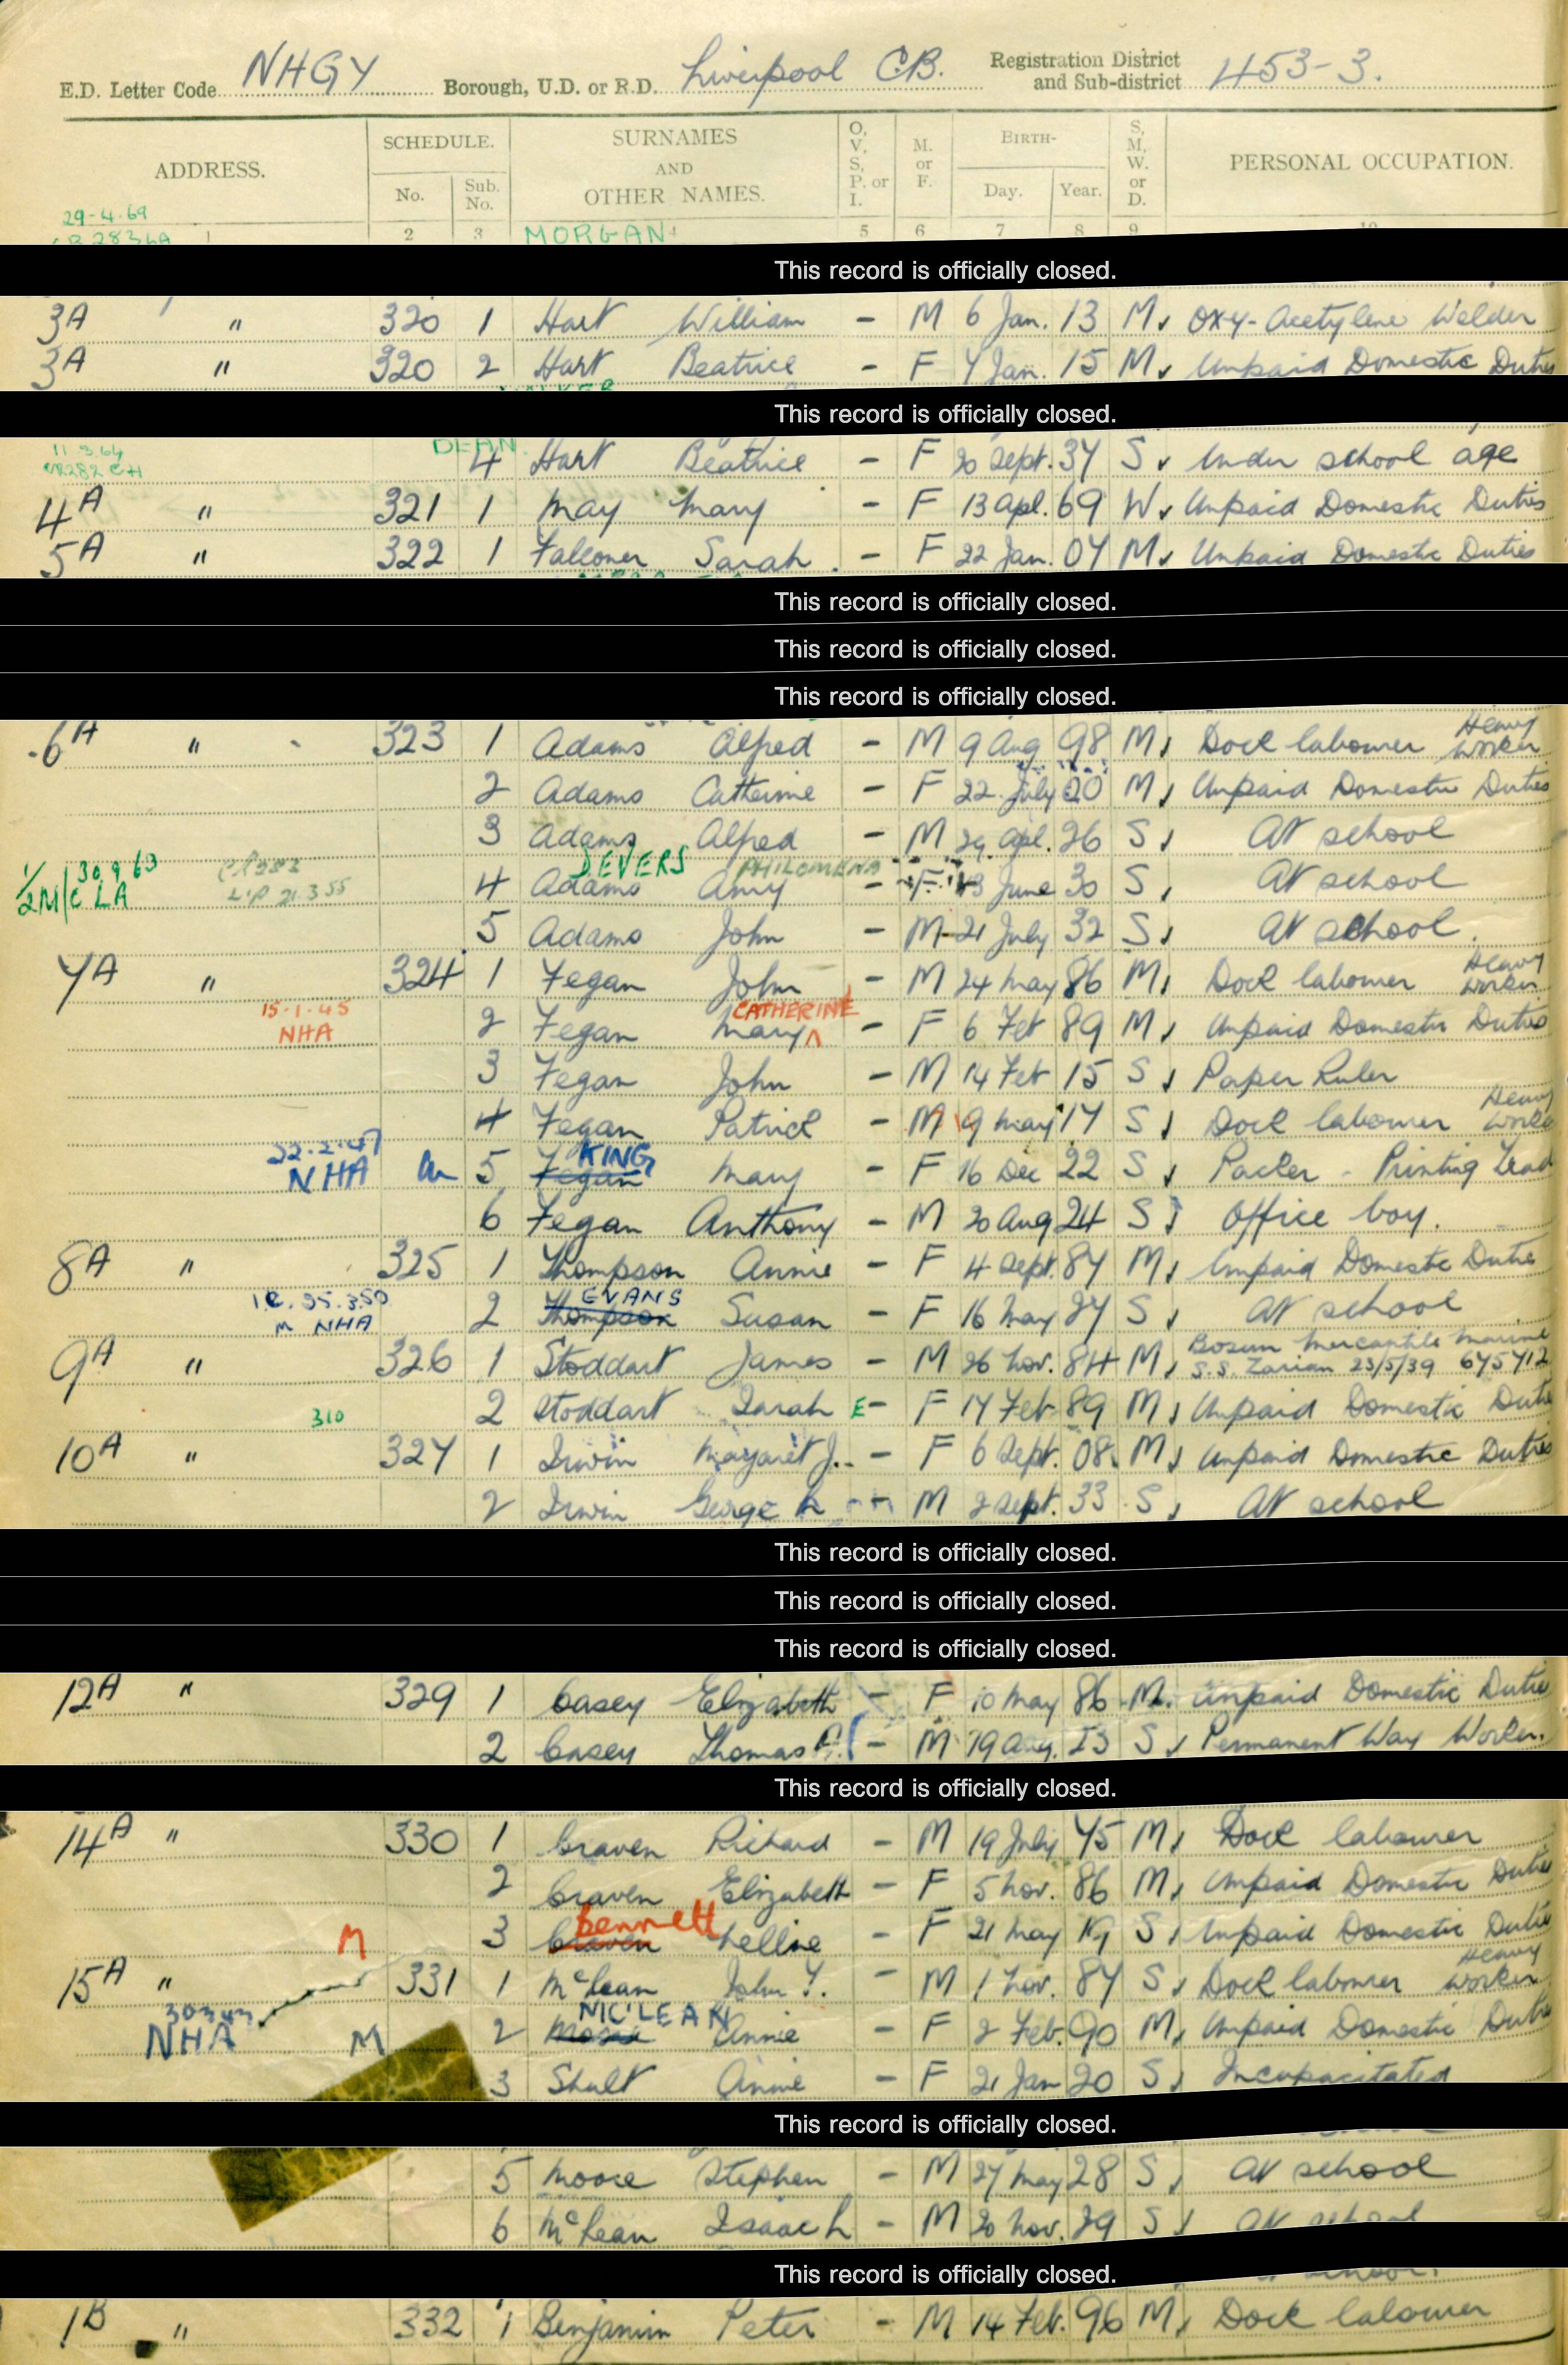 E.D. Letter Code NHGY Borough, U.D. or R.D. Liverpool C.B. Registration District and Sub-district 453-3.
ADDRESS. SCHEDULE. No. Sub. No. SURNAMES AND OTHER NAMES. O, V, S, P. or I. M. or F. BIRTH- Day. Year. S, M, W. or D. PERSONAL OCCUPATION.
29-4-69
2 3 MORGAN 5 6 7 8 9
This record is officially closed.
3A " 320 1 Hart William - M 6 Jan. 13 M Oxy-Acetylene Welder
3A " 320 2 Hart Beatrice - F 7 Jan. 15 M Unpaid Domestic Duties
This record is officially closed.
11 3 64 DEAN
4 Hart Beatrice - F 20 Sept. 37 S Under school age
4A " 321 1 May Mary - F 13 Apl. 69 W Unpaid Domestic Duties
5A " 322 1 Falconer Sarah - F 22 Jan. 07 M Unpaid Domestic Duties
This record is officially closed.
This record is officially closed.
This record is officially closed.
6A " 323 1 Adams Alfred - M 9 Aug 98 M Dock labourer Heavy Worker
2 Adams Catherine - F 22 July 00 M Unpaid Domestic Duties
3 Adams Alfred - M 29 Apl. 26 S At school
30.9.63 DEVERS PHILOMENA
1/2M/C LA L'P 21.3.55 4 Adams Amy - F 13 June 30 S At school
5 Adams John - M 21 July 32 S At school.
7A " 324 1 Fegan John - M 24 May 86 M Dock labourer Heavy Worker
15-1-45 CATHERINE
NHA 2 Fegan Mary - F 6 Feb 89 M Unpaid Domestic Duties
3 Fegan John - M 14 Feb 15 S Paper Ruler
4 Fegan Patrick - M 9 May 17 S Dock labourer Heavy Worke
22-2-47 KING
NHA 5 Fegan Mary - F 16 Dec 22 S Packer - Printing Trad
6 Fegan Anthony - M 20 Aug 24 S Office boy.
8A " 325 1 Thompson Annie - F 4 Sept. 87 M Unpaid Domestic Duties
EVANS
M NHA 2 Thompson Susan - F 16 May 27 S At school
9A " 326 1 Stoddart James - M 26 Nov. 84 M Bosun Mercantile Marine S.S. Zarian 23/5/39 675712
310 2 Stoddart Sarah E - F 17 Feb 89 M Unpaid Domestic Duties
10A " 327 1 Irwin Margaret J. - F 6 Sept. 08 M Unpaid Domestic Duties
2 Irwin George - M 2 Sept. 33 S At school
This record is officially closed.
This record is officially closed.
This record is officially closed.
12A " 329 1 Casey Elizabeth - F 10 May 86 M. Unpaid Domestic Duties
2 Casey Thomas - M 19 Aug. 13 S Permanent Way Worker.
This record is officially closed.
14A " 330 1 Craven Richard - M 19 July 75 M Dock labourer
2 Craven Elizabeth - F 5 Nov. 86 M Unpaid Domestic Duties
Bennett
M 3 Craven Nellie - F 21 May 19 S Unpaid Domestic Duties
15A " 331 1 McLean John - M 1 Nov. 87 S Dock labourer Heavy Worker
MC'LEAN
NHA M 2 Annie - F 2 Feb. 90 M Unpaid Domestic Duties
3 Shult Annie - F 21 Jan 20 S Incapacitated
This record is officially closed.
5 Moore Stephen - M 27 May 28 S At school
6 McLean Isaac L - M 20 Nov. 29 S At school
This record is officially closed.
1B " 332 1 Benjamin Peter - M 14 Feb. 96 M Dock labourer